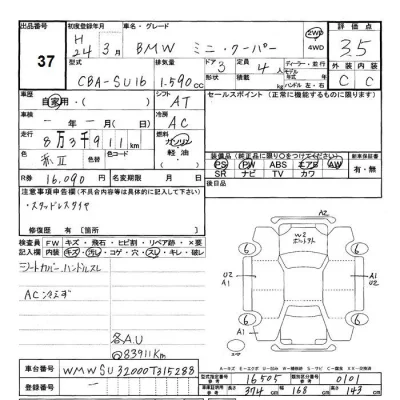 出品番号 37
初度登録年月 H 24年 3月
車名・グレード BMW ミニ・クーパー
2WD 4WD
評価点 3.5
型式 CBA-SU16
排気量 1.590 cc
ドア 3
定員 4人
ディーラー・並行
モデル 年
ハンドル 左・右
外装 内装
C C
車歴 自家用・( )
シフト AT
セールスポイント(正常に機能するものに限ります)
車検 一年 一月 一日
冷房 AC
走行 8万3千911km
燃料 ガソリン 軽油
色 赤II
色替
色コード
装備品(純正品に限り○をつけてください)
PS PW ABS エアB AW
SR ナビ TV カワ
新車保証書 有・無
R券 16,090円
名変期限 年 月 日
後日品
注意事項申告欄(不具合内容等は具体的に記入して下さい)
・スタッドレスタイヤ
修復歴 有 [箇所 ]
検査員記入欄
FW キズ・飛石・ヒビ割・リペア跡・×要
内装 キズ・汚レ・コゲ・穴・スレ・キレ・破レ
シートカバー、ハンドルスレ
各A.U
@83911Km
A2
W2
6 6 6 6
U2 A1
U2 A1
A1
A1
車台番号 WMWSU32000T315288
登録番号 一
型式指定番号 16505
類別区分番号 0101
長さ 374
幅 168
高さ 143